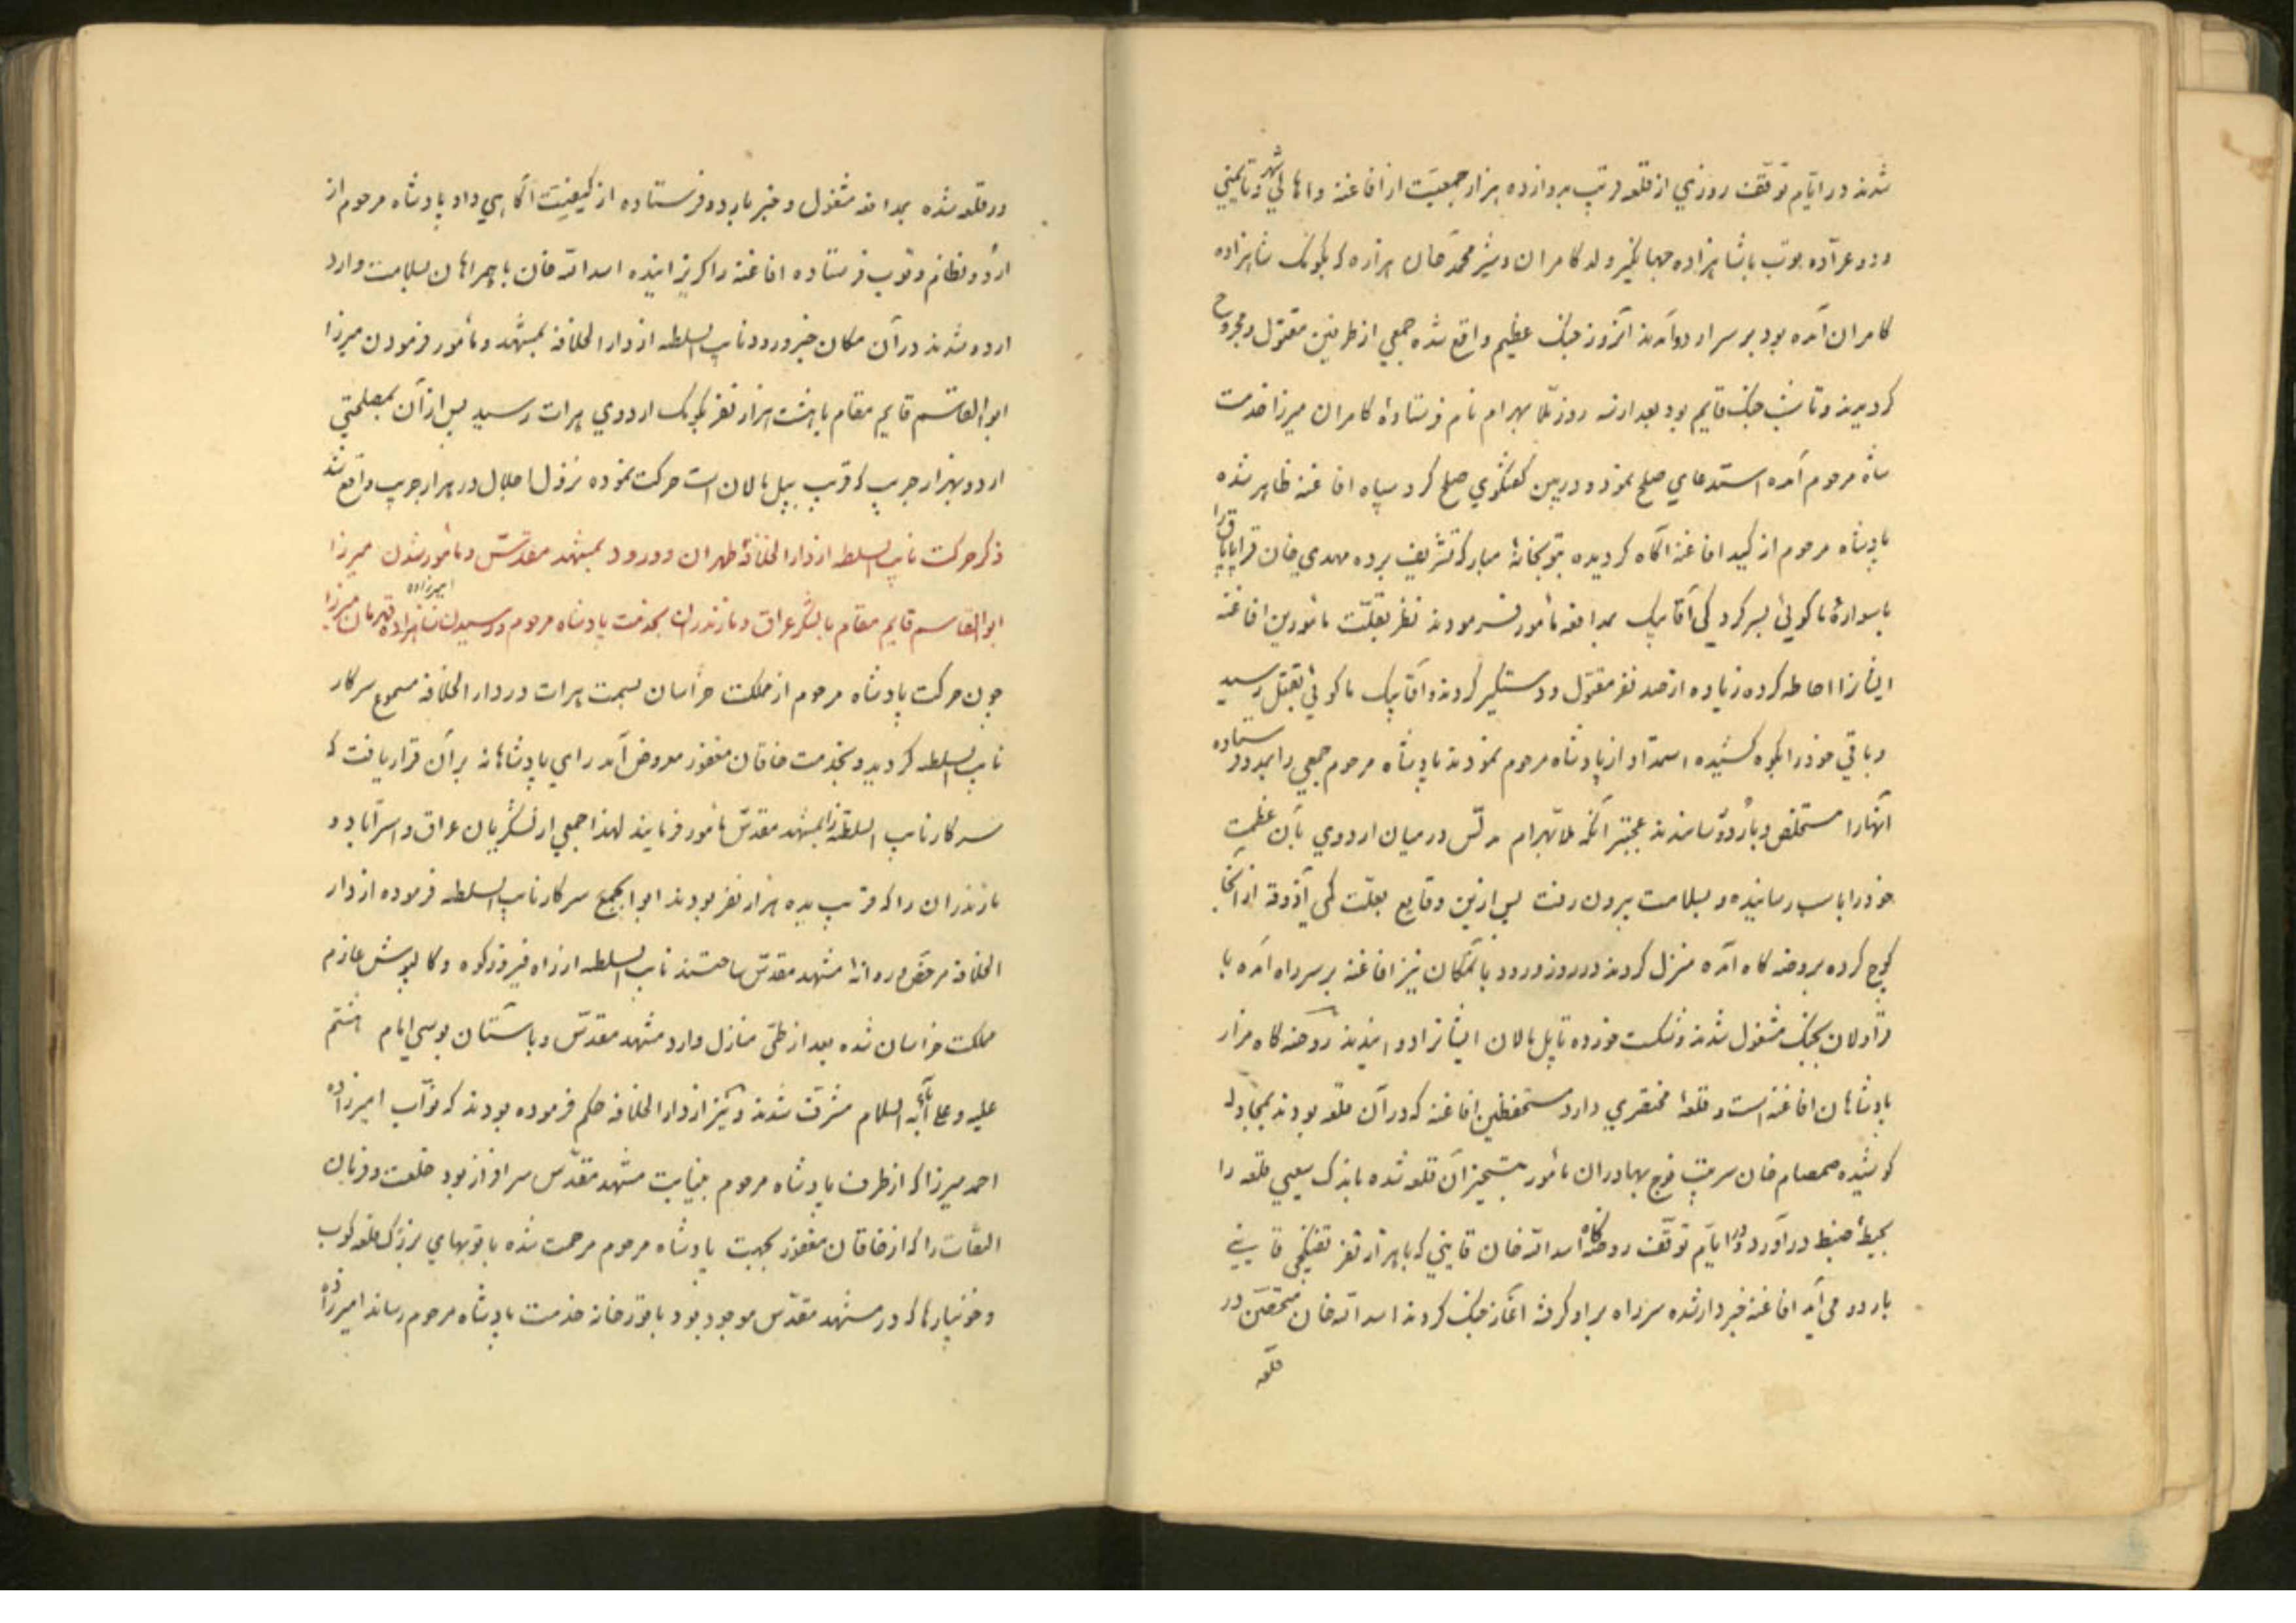 شدند در ایّام توقّف روزی از قلعه قریب بدوازده هزار جمعیّت از افاغنه و اهالی شهر و تایمنی
و دو عرّاده توپ باشاهزاده جهانگیر ولد کامران و شیر محمد خان هزاره که بکومک شاهزاده
کامران آمده بود بر سر اردو آمدند آنروز جنگ عظیم واقع شده جمعی از طرفین مقتول و مجروح
کردیدند و تا شب جنگ قایم بود بعد از سه روز ملّا بهرام نام فرستادهٔ کامران میرزا خدمت
شاه مرحوم آمده استدعای صلح نمود و در بین کفتکوی صلح کرد سپاه افاغنه ظاهر شده
پادشاه مرحوم از کید افاغنه آکاه کردیده بتوپخانهٔ مبارکه تشریف برده مهدی خان قراپاپاق را
با سوارهٔ ماکوئی بسرکردکی آقا بیک بمدافعه مأمور فرمودند نظر بقلّت مأمورین افاغنه
ایشانرا احاطه کرده زیاده از صد نفر مقتول و دستکیر کردند و آقا بیک ماکوئی بقتل رسید
و باقی خود را بکوه کشیده استمداد از پادشاه مرحوم نمودند پادشاه مرحوم جمعی را بمدد فرستاده
آنهارا مستخلص و باردو رسانیدند عجبتر آنکه ملّا بهرام در میان اردوی بآن عظمت
خود را باسب رسانیده و بسلامت بیرون رفت پس ازین وقایع بعلّت کمی آذوقه از آنجا
کوچ کرده بروضه کاه آمده منزل کردند در روز ورود بآنمکان نیز افاغنه بر سر راه آمده با
قراولان بجنک مشغول شدند و شکست خورده تا پل مالان ایشانرا دوانیدند روضه کاه مزار
پادشاهان افاغنه است و قلعهٔ مختصری دارد مستحفظین افاغنه که در آن قلعه بودند بمجادله
کوشیده صمصام خان سرتیپ فوج بهادران مأمور بتسخیر آن قلعه شده باندک سعیی قلعه را
بحیطهٔ ضبط درآورد و در ایّام توقّف روضه کاه اسد الله خان قاینی که با هزار نفر تفنکچی قاینی
باردو می آید افاغنه خبردار شده سر راه بر او کرفته آغاز جنک کردند اسد الله خان متحصّن در
قلعه
در قلعه شده بمدافعه مشغول و خبر باردو فرستاده از کیفیّت آکاهی داد پادشاه مرحوم از
اردو نظام و توپ فرستاده افاغنه را کریزانیده اسد الله خان با همراهان بسلامت وارد
اردو شدند در آن مکان خبر ورود نایب السلطنه از دار الخلافه بمشهد و مأمور فرمودن میرزا
ابو القاسم قایم مقام با هشت هزار نفر بکومک اردوی هرات رسید پس از آن بمصلحتی
اردو بهزار جریب که قریب بپل مالان است حرکت نموده نزول اجلال در هزار جریب واقع شد
ذکر حرکت نایب السلطنه از دار الخلافهٔ طهران و ورود بمشهد مقدّس و مأمور شدن میرزا
ابو القاسم قایم مقام بالشکر عراق و مازندران بخدمت پادشاه مرحوم و رسیدن شاهزاده امیرزاده قهرمان میرزا
چون حرکت پادشاه مرحوم از مملکت خراسان بسمت هرات در دار الخلافه مسموع سرکار
نایب السلطنه کردید و بخدمت خاقان مغفور معروض آمد رای پادشاهانه بر آن قرار یافت که
سرکار نایب السلطنه را بمشهد مقدّس مأمور فرمایند لهذا جمعی از لشکریان عراق و استراباد و
مازندران را که قریب بده هزار نفر بودند ابوابجمع سرکار نایب السلطنه فرموده از دار
الخلافه مرخّص و روانهٔ مشهد مقدّس ساختند نایب السلطنه از راه فیروزکوه و کالپوش عازم
مملکت خراسان شده بعد از طیّ منازل وارد مشهد مقدّس و باستان بوسی امام هشتم
علیه و علی آبائه السلام مشرّف شدند و نیز از دار الخلافه حکم فرموده بودند که نوّاب امیرزاده
احمد میرزا که از طرف پادشاه مرحوم بنیابت مشهد مقدّس سرافراز بود خلعت و فرمان
التفات را که از خاقان مغفور بجهت پادشاه مرحوم مرحمت شده با توپهای بزرک قلعه کوب
و خونپارها که در مشهد مقدّس موجود بود با قورخانه خدمت پادشاه مرحوم رساند امیرزاده